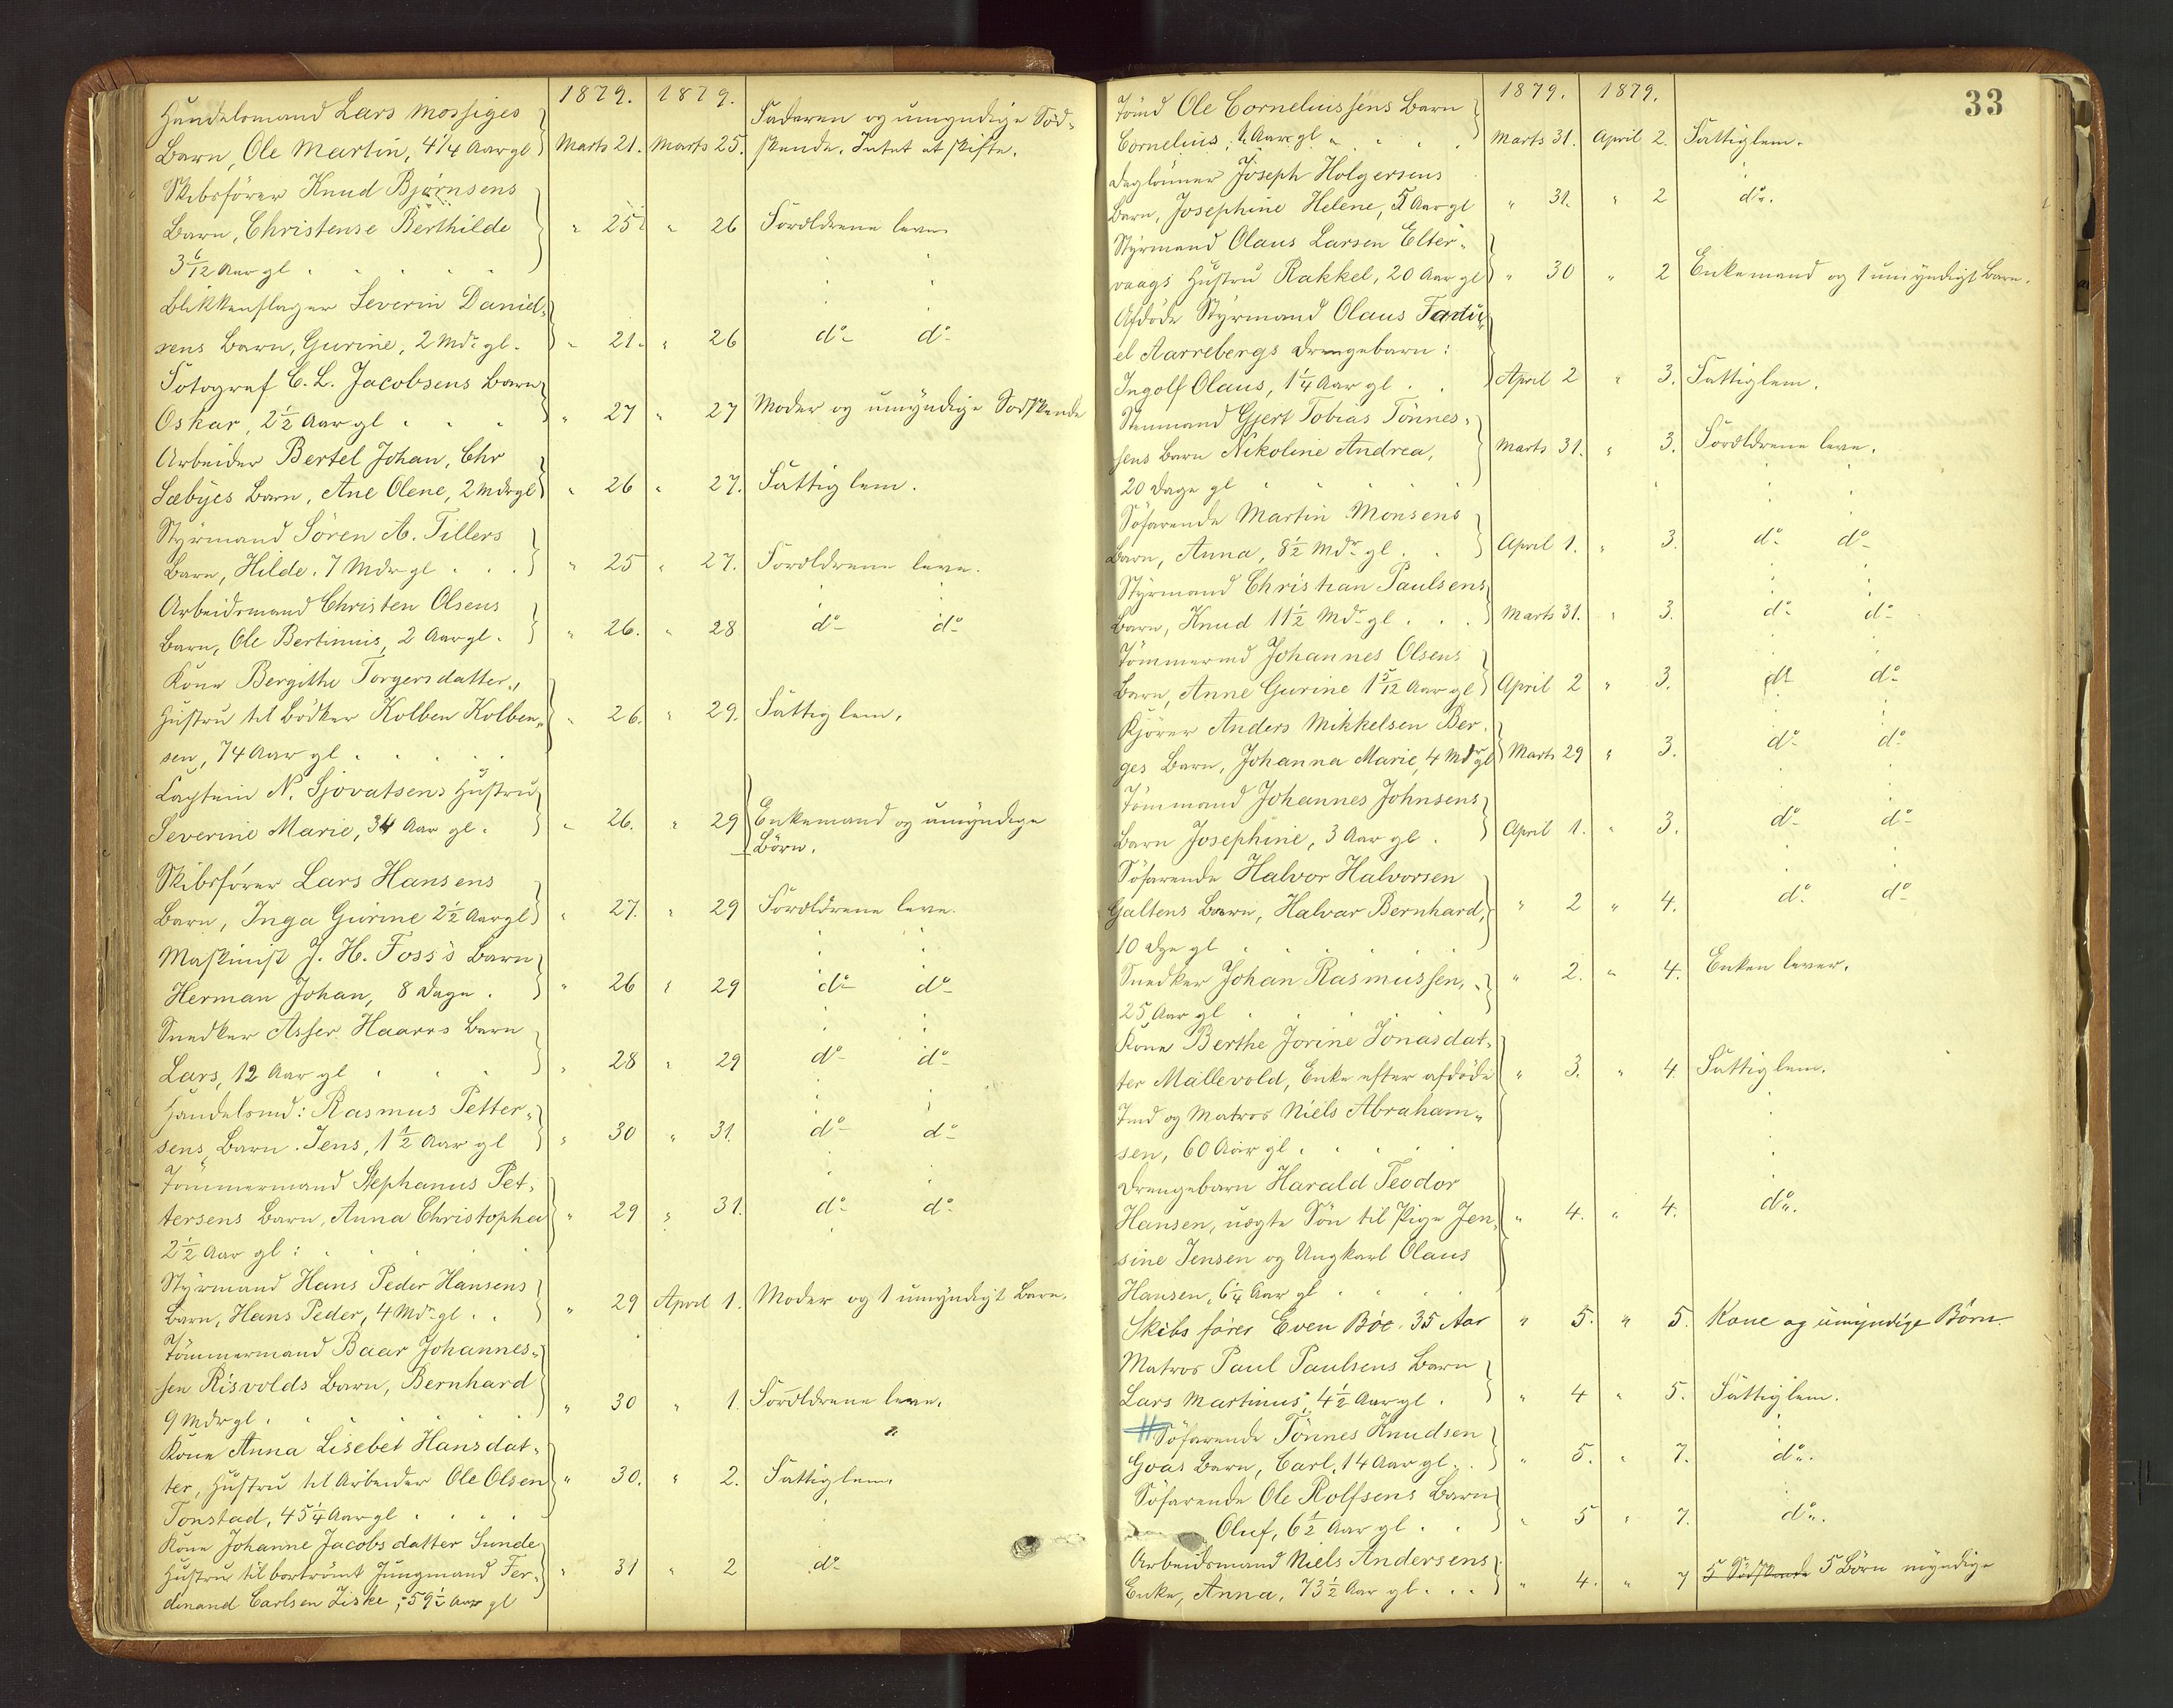 1879. 1879.
Handelsmand Lars Mossiges
Barn, Ole Martin, 4 1/4 Aar gl Marts 21. Marts 25. Faderen og umyndige Sød-
skende. Intet at skifte.
Skibsfører Knud Bjørnsens
Barn, Christense Berthilde " 25 " 26 Forældrene leve.
3 6/12 Aar gl
Blikkenslager Severin Daniel-
sens Barn, Gurine, 2 Mdr gl. " 21. " 26 do do
Fotograf C. L. Jacobsens Barn
Oskar, 2 1/2 Aar gl " 27 " 27 Moder og umyndige Sødskende
Arbeider Bertel Johan, Chr
Sæbyes Barn, Ane Olene, 2 Mdr gl " 26 " 27. Fattiglem.
Styrmand Sören A. Tillers
Barn, Hilde. 7 Mdr gl " 25 " 27. Forældrene leve.
Arbeidsmand Christen Olsens
Barn, Ole Bertinius, 2 Aar gl. " 26. " 28 do do
Kone Bergithe Torgersdatter,
Hustru til Bødker Kolben Kolben- " 26. " 29. Fattiglem.
sen, 74 Aar gl
Captein N. Sjovatsens Hustru
Severine Marie, 34 Aar gl. " 26. " 29 Enkemand og umyndige
Børn.
Skibsfører Lars Hansens
Barn, Inga Gurine 2 1/2 Aar gl " 27. " 29 Forældrene leve.
Maskinist J. H. Foss's Barn
Herman Johan, 8 Dage. " 26 " 29 do do
Snedker Asser Haarrs Barn
Lars, 12 Aar gl " 28 " 29 do do
Handelsmd: Rasmus Petter-
sens Barn. Jens, 1 1/2 Aar gl " 30 " 31. do do
Tømmermand Stephanus Pet-
tersens Barn, Anna Christopha " 29 " 31. do do
2 1/2 Aar gl:
Styrmand Hans Peder Hansens
Barn, Hans Peder, 4 Mdr gl. " 29 April 1. Moder og 1 umyndigt Barn.
Tömmermand Baar Johannes-
sen Risvolds Barn, Bernhard " 30 " 1. Forældrene leve.
9 Mdr gl.
Kone Anna Lisebet Hansdat-
ter, Hustru til Arbeider Ole Olsen " 30. " 2. Fattiglem.
Tonstad, 45 1/4 Aar gl
Kone Johanne Jacobsdatter Sunde
Hustru til bortrømt Jungmand Fer- " 31 " 2 do
dinand Carlsen Ziske, 59 1/2 Aar gl
33
1879. 1879.
Tømd Ole Corneliussens Barn
Cornelius, Aar gl Marts 31. April 2. Fattiglem.
Dagløнner Joseph Holgersens
Barn, Josephine Helene, 5 Aar gl " 31. " 2 do.
Styrmand Olaus Larsen Elter-
vaags Hustru Rakkel, 20 Aar gl " 30 " 2 Enkemand og 1 umyndigt Barn.
Afdøde Styrmand Olaus
el Aarrebergs Drengebarn:
Ingolf Olaus, 1 1/4 Aar gl. April 2 " 3. Fattiglem.
Stenmand Gjert Tobias Tönnes-
sens Barn Nikoline Andrea, Marts 31. " 3. Forældrene leve.
20 Dage gl
Søfarende Martin Monsens
Barn, Anna, 8 1/2 Mdr gl. April 1. " 3. do do
Styrmand Christian Paulsens
Barn, Knud 11 1/2 Mdr gl. Marts 31. " 3. do do
Tömmermd Johannes Olsens
Barn, Anne Gurine 1 5/12 Aar gl April 2 " 3. do do
Kjører Anders Mikkelsen Ber-
ges Barn, Johanna Marie, 4 Mdr gl Marts 29 " 3. do do
Tömmand Johannes Johnsens
Barn Josephine, 3 Aar gl. April 1. " 3. do do
Søfarende Halvor Halvorsen
Galtens Barn, Halvar Bernhard, " 2 " 4. do do
10 Dge gl
Snedker Johan Rasmussen, " 2. " 4. Enken lever.
25 Aar gl
Kone Berthe Jorine Jonasdat-
ter Mallevold, Enke efter afdøde " 3. " 4. Fattiglem.
Tmd og Matros Niels Abraham-
sen, 60 Aar gl.
Drengebarn Harald Teodor
Hansen, uægte Søn til Pige Jen- " 4. " 4. do.
sine Jensen og Ungkarl Olaus
Hansen, 6 1/4 Aar gl
Skibsfører Even Böe. 35 Aar " 5. " 5. Kone og umyndige Børn
Matros Paul Paulsens Barn
Lars Martinius, 4 1/2 Aar gl. " 4 " 5. Fattiglem.
Søfarende Tönnes Knudsen
Goas Barn, Carl, 14 Aar gl. " 5. " 7. do.
Søfarende Ole Rolfsens Barn
Oluf, 6 1/2 Aar gl. " 5 " 7. do.
Arbeidsmand Niels Andersens
Enke, Anna, 73 1/2 Aar gl. " 4. " 7 5 Sødskende 5 Børn myndige